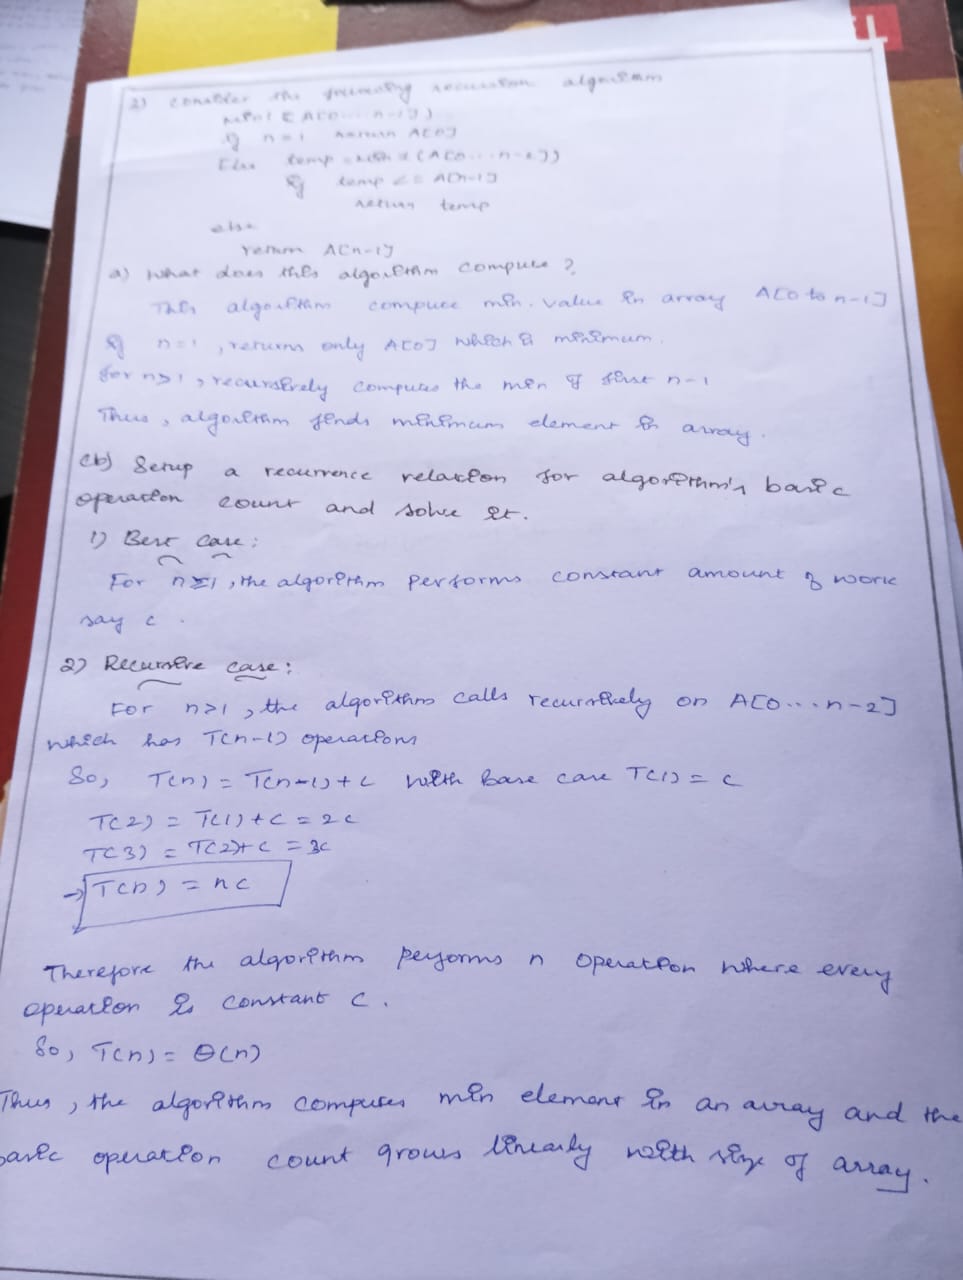 2) Consider the following recursion algorithm
Min1 (A[0....n-1])
If n=1 return A[0]
Else temp = Min1 (A[0...n-2])
If temp <= A[n-1]
return temp
else
return A[n-1]
a) What does this algorithm compute?
This algorithm compute min. value in array A[0 to n-1]
If n=1, returns only A[0] which is minimum.
For n>1, recursively computes the min of first n-1
Thus, algorithm finds minimum element in array.
(b) Setup a recurrence relation for algorithm's basic
operation count and solve it.
1) Best case:
For n=1, the algorithm performs constant amount of work
say c.
2) Recursive case:
For n>1, the algorithm calls recursively on A[0...n-2]
which has T(n-1) operations
So, T(n) = T(n-1)+c with Base case T(1) = c
T(2) = T(1)+c = 2c
T(3) = T(2)+c = 3c
→ T(n) = nc
Therefore the algorithm performs n operation where every
operation is constant c.
So, T(n) = Θ(n)
Thus, the algorithm computes min element in an array and the
basic operation count grows linearly with size of array.